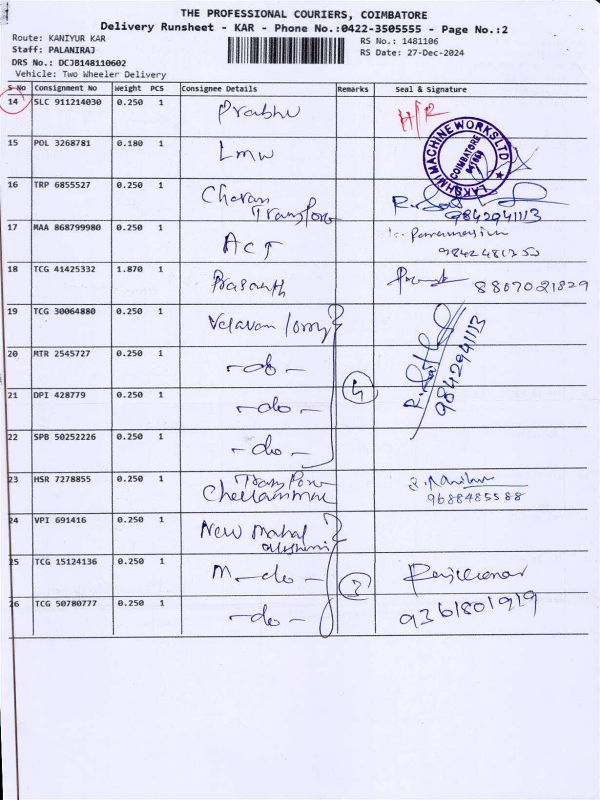 THE PROFESSIONAL COURIERS, COIMBATORE
Delivery Runsheet - KAR - Phone No.:0422-3505555 - Page No.:2
Route: KANIYUR KAR
Staff: PALANIRAJ
DRS No.: DCJB148110602
Vehicle: Two Wheeler Delivery
RS No.: 1481106
RS Date: 27-Dec-2024
S No Consignment No Weight PCS Consignee Details Remarks Seal & Signature
14 SLC 911214030 0.250 1 Prabhu H/R
15 POL 3268781 0.180 1 Lmw
LAKSHMI MACHINE WORKS LTD
COIMBATORE
641659
16 TRP 6855527 0.250 1 Cheran
Transport
9842941113
17 MAA 868799980 0.250 1 ACT
18 TCG 41425332 1.870 1 Prasanth 8807021829
19 TCG 30064880 0.250 1 Velavan lorry
20 MTR 2545727 0.250 1 -do- 4
9842941113
21 DPI 428779 0.250 1 -do-
22 SPB 50252226 0.250 1 -do-
23 HSR 7278855 0.250 1 Transport
9688485588
24 VPI 691416 0.250 1 New Mahal
25 TCG 15124136 0.250 1 M -do- 3
26 TCG 50780777 0.250 1 -do- 9361801919